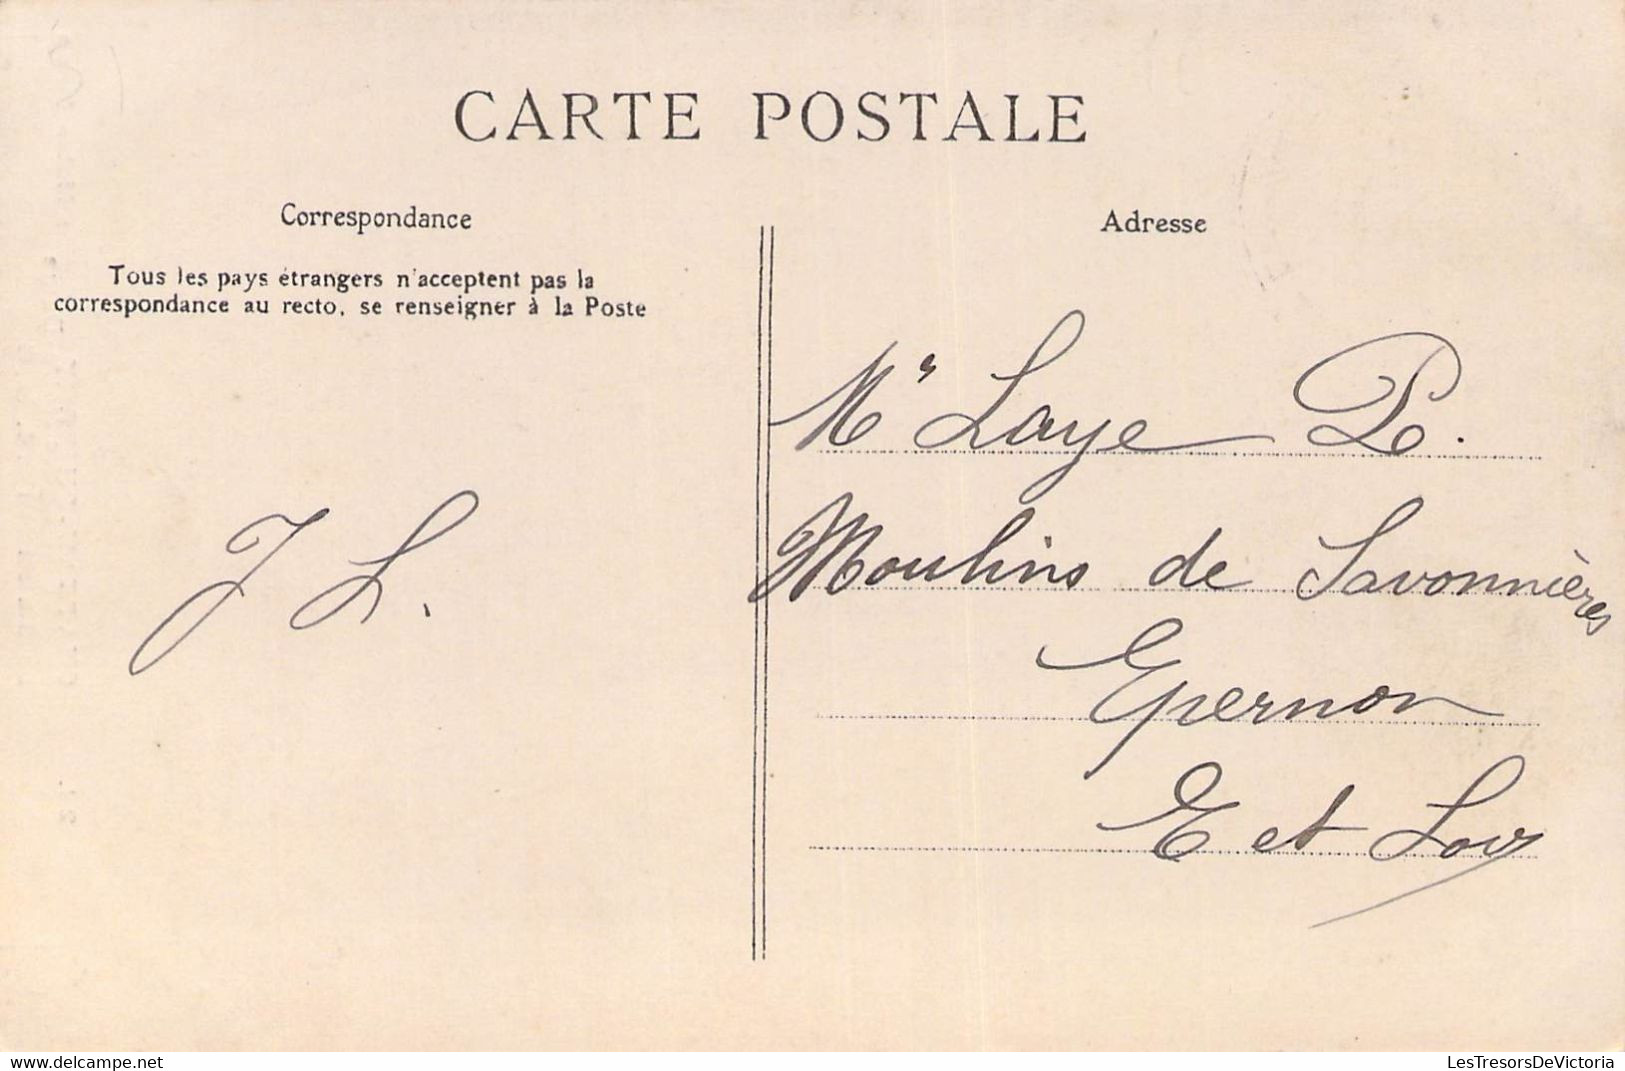 CARTE POSTALE
Correspondance
Tous les pays étrangers n'acceptent pas la
correspondance au recto, se renseigner à la Poste
J L.
Adresse
Mr Laye P.
Moulins de Savonnières
Epernon
E et Loir
delcampe.net
LesTresorsDeVictoria